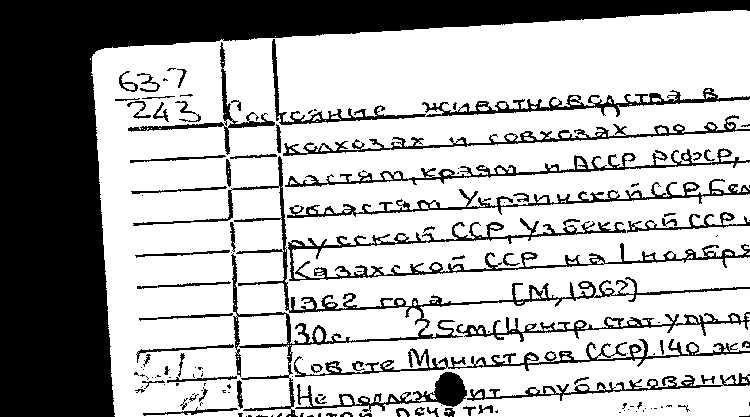 63-7
243 Состояние животноводства в
колхозах и совхозах по об-
ластям, краям и АССР РСФСР,
областям Украинской ССР, Бел
русской ССР, Узбекской ССР и
Казахской ССР на 1 ноября
1962 года. [М, 1962)
30с. 25см (Центр. стат упр. пр
Сов сте Министров СССР) 140 экз
Не подлежит опубликованию
печати.